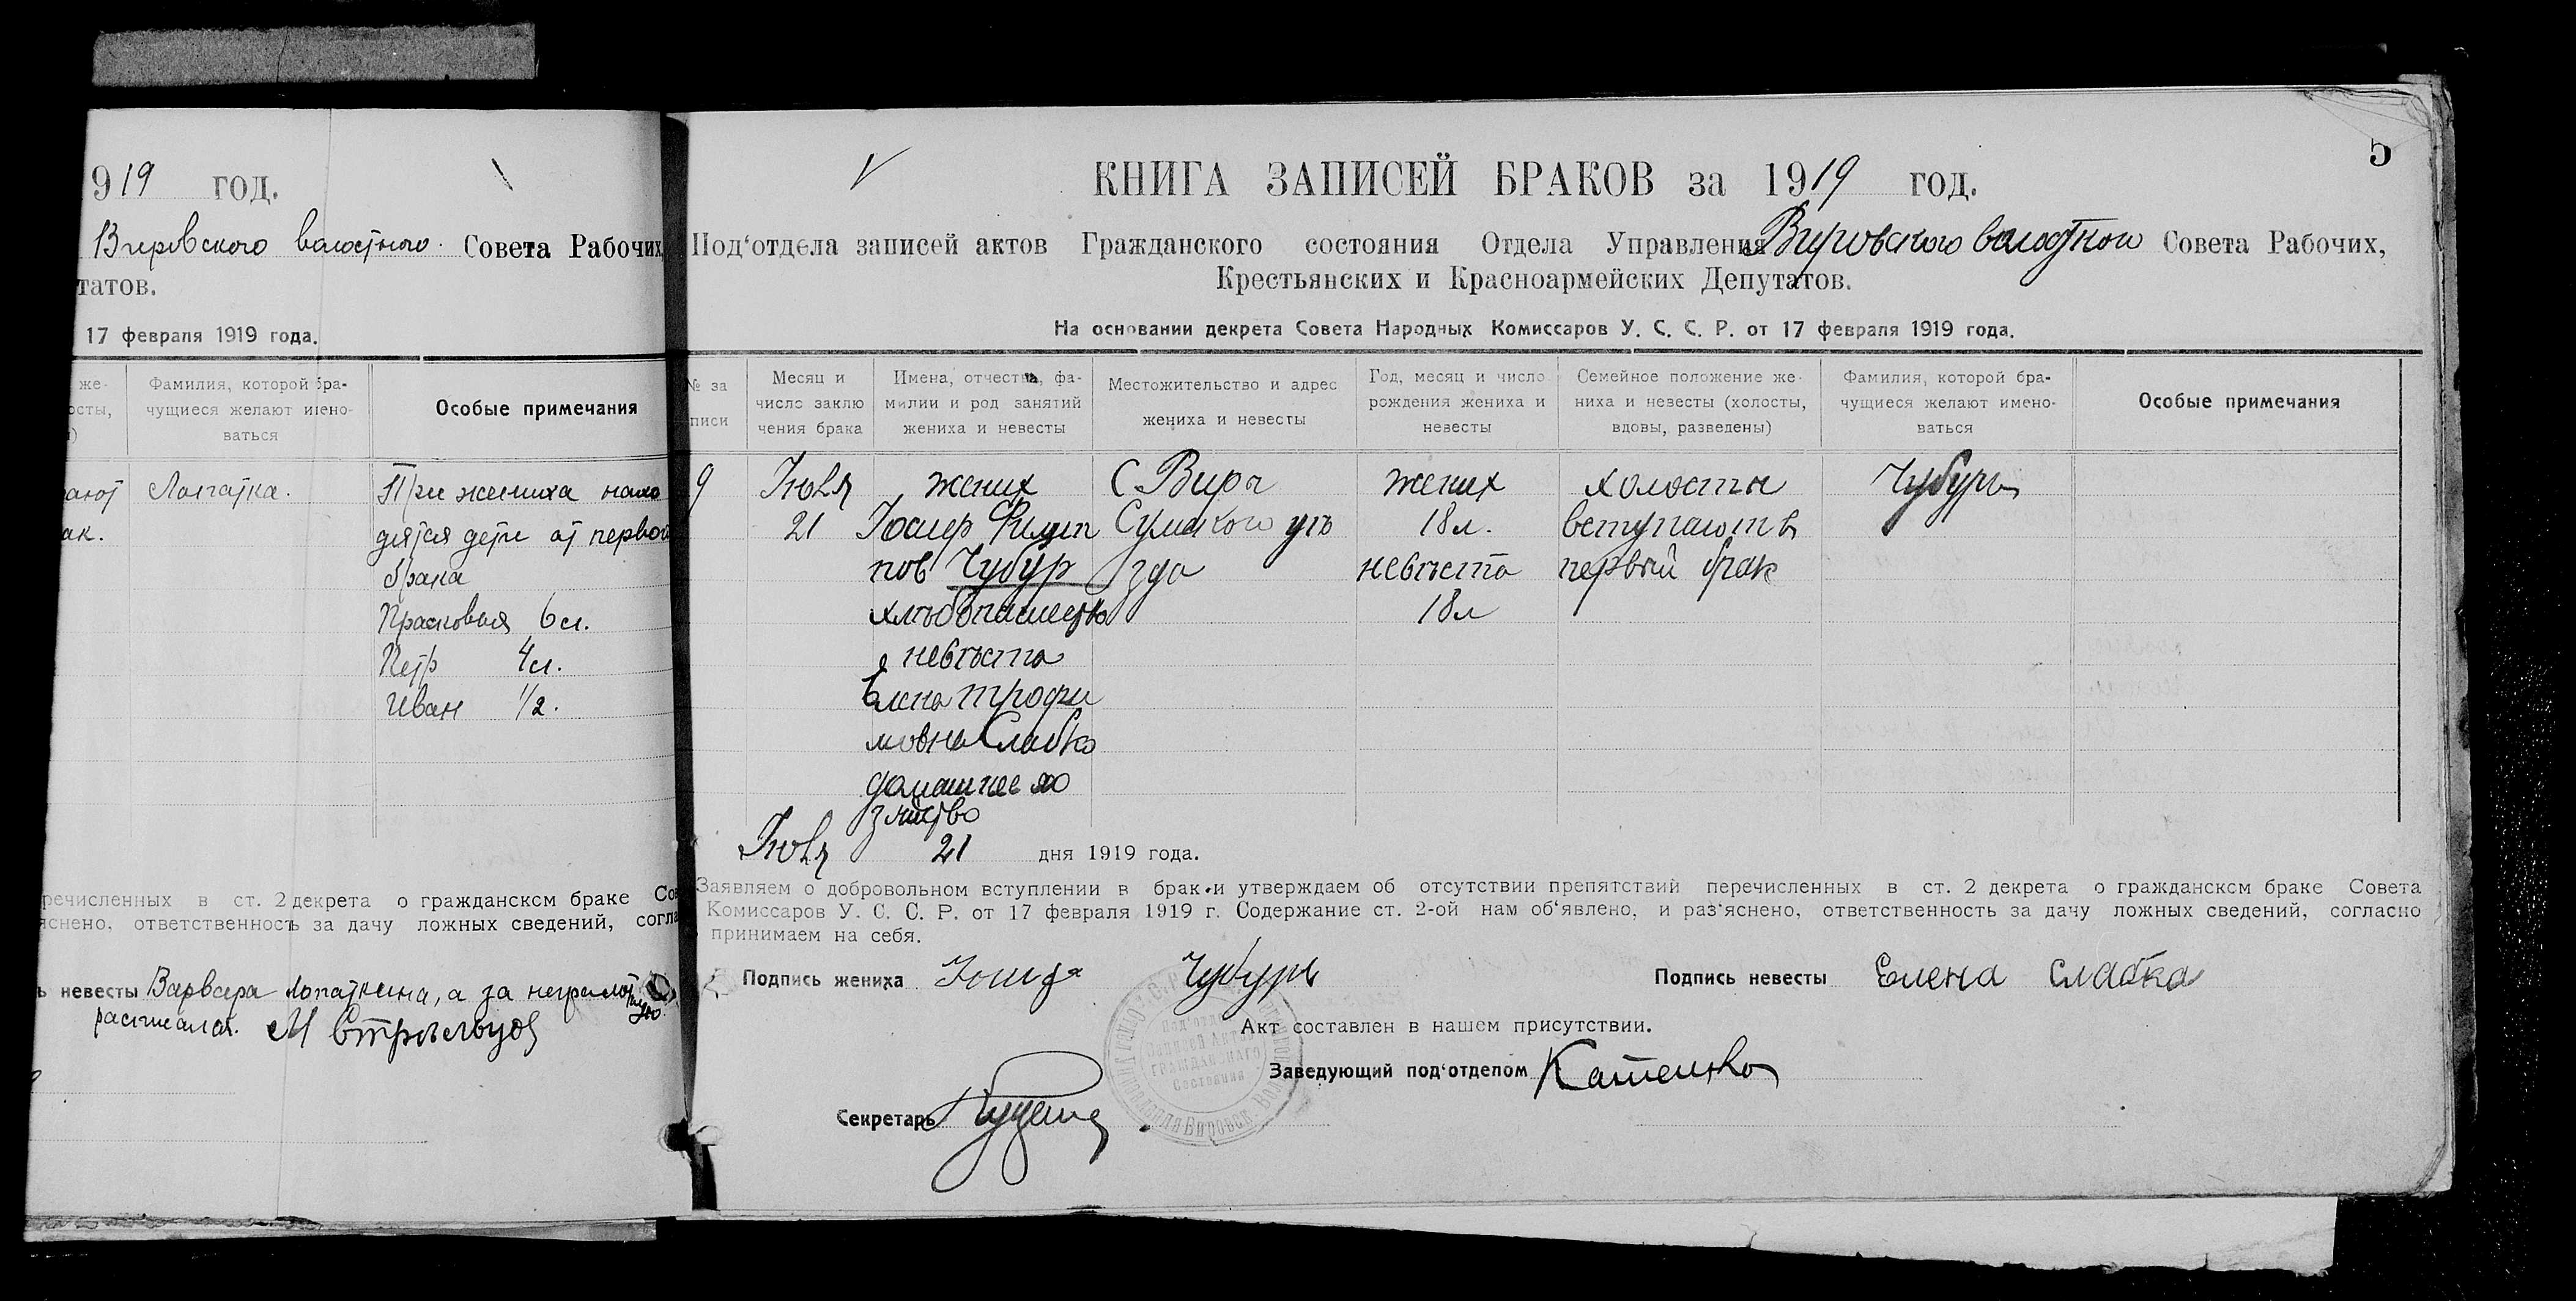 919 год.
Вировского волостного Совета Рабочих,
татов.
17 февраля 1919 года.
же-
осты,
)
Фамилия, которой бра-
чущиеся желают имено-
ваться
Особые примечания
ают
ак.
Лопатка.
При жениха нахо
дятся дети от первой
брака
Прасковья 6 л.
Петр 4 л.
Иван 1/2.
речисленных в ст. 2 декрета о гражданском браке Сов
яснено, ответственность за дачу ложных сведений, согла
ь невесты Варвара Лопаткина, а за неграмот
расписался. М
5
КНИГА ЗАПИСЕЙ БРАКОВ за 1919 год.
Под‘отдела записей актов Гражданского состояния Отдела Управления Вировского волостной Совета Рабочих,
Крестьянских и Красноармейских Депутатов.
На основании декрета Совета Народных Комиссаров У. С. С. Р. от 17 февраля 1919 года.
№ за
писи
Месяц и
число заклю
чения брака
Имена, отчества, фа-
милии и род занятий
жениха и невесты
Местожительство и адрес
жениха и невесты
Год, месяц и число
рождения жениха и
невесты
Семейное положение же-
ниха и невесты (холосты,
вдовы, разведены)
Фамилия, которой бра-
чущиеся желают имено-
ваться
Особые примечания
9
Июля
21
жених
Иосиф Филип
пов Чубур
хлѣбопашество
невѣста
Елена Трофи
мовна Слабко
домашнее хо
зяйство
С Виры
Сумского уѣ
зда
жених
18 л.
невѣста
18 л
холосты
вступают в
первый брак
Чубуръ
Июля 21 дня 1919 года.
Заявляем о добровольном вступлении в брак и утверждаем об отсутствии препятствий перечисленных в ст. 2 декрета о гражданском браке Совета
Комиссаров У. С. С. Р. от 17 февраля 1919 г. Содержание ст. 2-ой нам об‘явлено, и раз‘яснено, ответственность за дачу ложных сведений, согласно
принимаем на себя.
Подпись жениха Чубуръ
Подпись невесты Елена Слабка
Акт составлен в нашем присутствии.
Заведующий под‘отделом
Секретарь
Под‘отдел
Записей Актов
Состояния